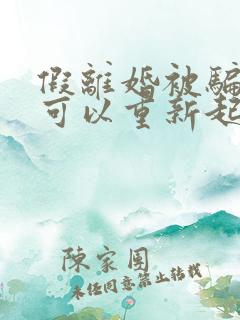 假離婚被騙
可以重新起
陳家園
未經同意禁止轉載